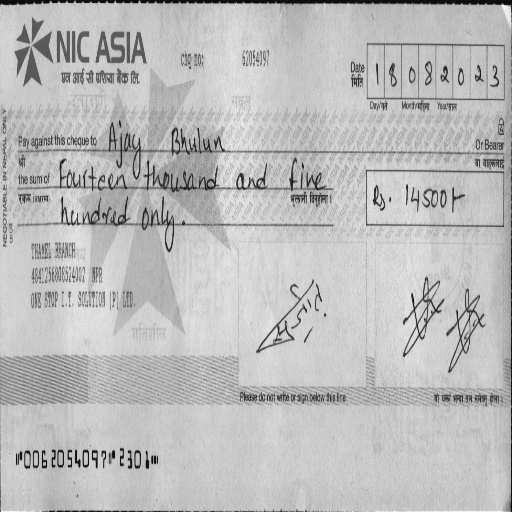 NIC ASIA
एन आई सी एशिया बैंक लि.
Chq no: 62054097
Date
मिति
18082023
Day/गते Month/महिना Year/साल
NEGOTIABLE IN NEPAL ONLY
Pay against this cheque to Ajay Bhulun Or Bearer
श्री वा वाहकलाई
the sum of Fourteen thousand and five
hundred only.
Rs. 14500/-
THAMEL BRANCH
NPR
ONE STOP I.T. SOLUTION (P) LTD.
गतिशील
Please do not write or sign below this line
⑈0062054097⑈2301⑈